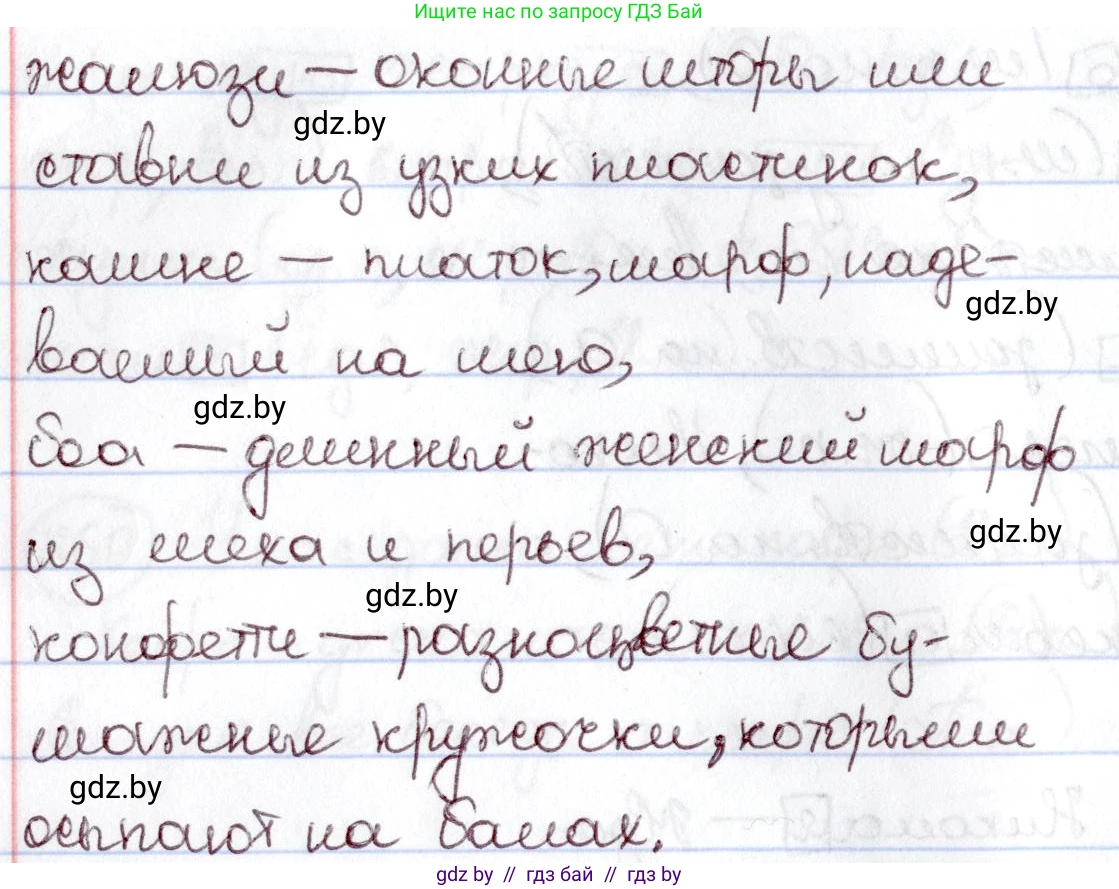 Ищите нас по запросу ГДЗ Бай
жалюзи — оконные шторы или
gdz.by
ставни из узких пластинок,
кашне — платок, шарф, наде-
gdz.by
ваемый на шею,
gdz.by
боа — длинный женский шарф
gdz.by
из меха и перьев,
gdz.by
конфетти — разноцветные бу-
мажные кружочки, которыми
gdz.by
осыпают на балах.
gdz.by // гдз бай // гдз by